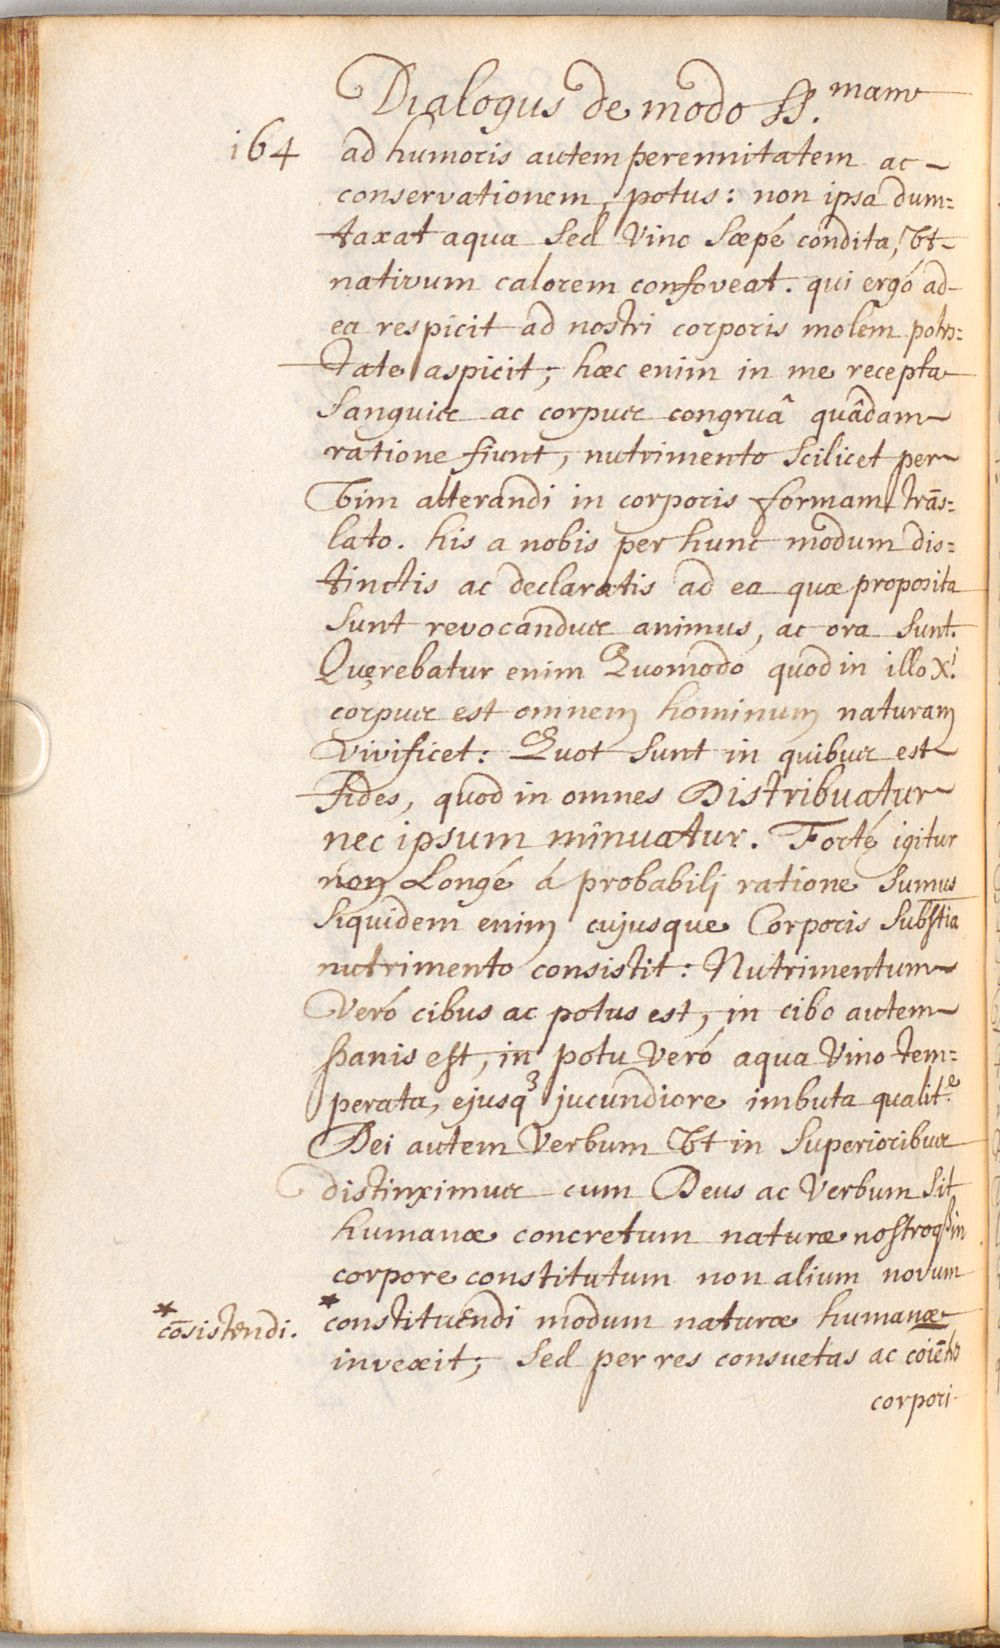 Dialogus de modo SS. mam
164
ad humoris autem perennitatem ac-
conservationem, potus: non ipsa dum=
taxat aqua sed Vino sæpé condita, Vt-
nativum calorem confoveat. qui ergó ad-
ea respicit ad nostri corporis molem potes=
tate aspicit; hæc enim in me recepta
sanguis ac corpus congruâ quâdam
ratione fiunt, nutrimento scilicet per
Vim alterandi in corporis formam trās=
lato. his a nobis per hunc modum dis=
tinctis ac declaratis ad ea quæ proposita
sunt revocandus animus, ac ora sunt.
Quęrebatur enim Quomodo quod in illo X.i
corpus est omnem hominum naturam
vivificet: Quot sunt in quibus est
fides, quod in omnes Distribuatur
nec ipsum minuatur. Forté igitur
non Longé á probabili ratione sumus
siquidem enim cujusque Corporis Substia
nutrimento consistit: Nutrimentum
Veró cibus ac potus est, in cibo autem
panis est, in potu Veró aqua Vino tem=
perata, ejusq3 jucundiore imbuta qualit.e
Dei autem Verbum Vt in superioribus
distinximus cum Deus ac Verbum sit
humanæ concretum naturæ nostroq3 in
corpore constitutum non alium novum
*constituendi modum naturæ humanæ
*cōsistendi.
invexit; sed per res consuetas ac coiētes
corpori-